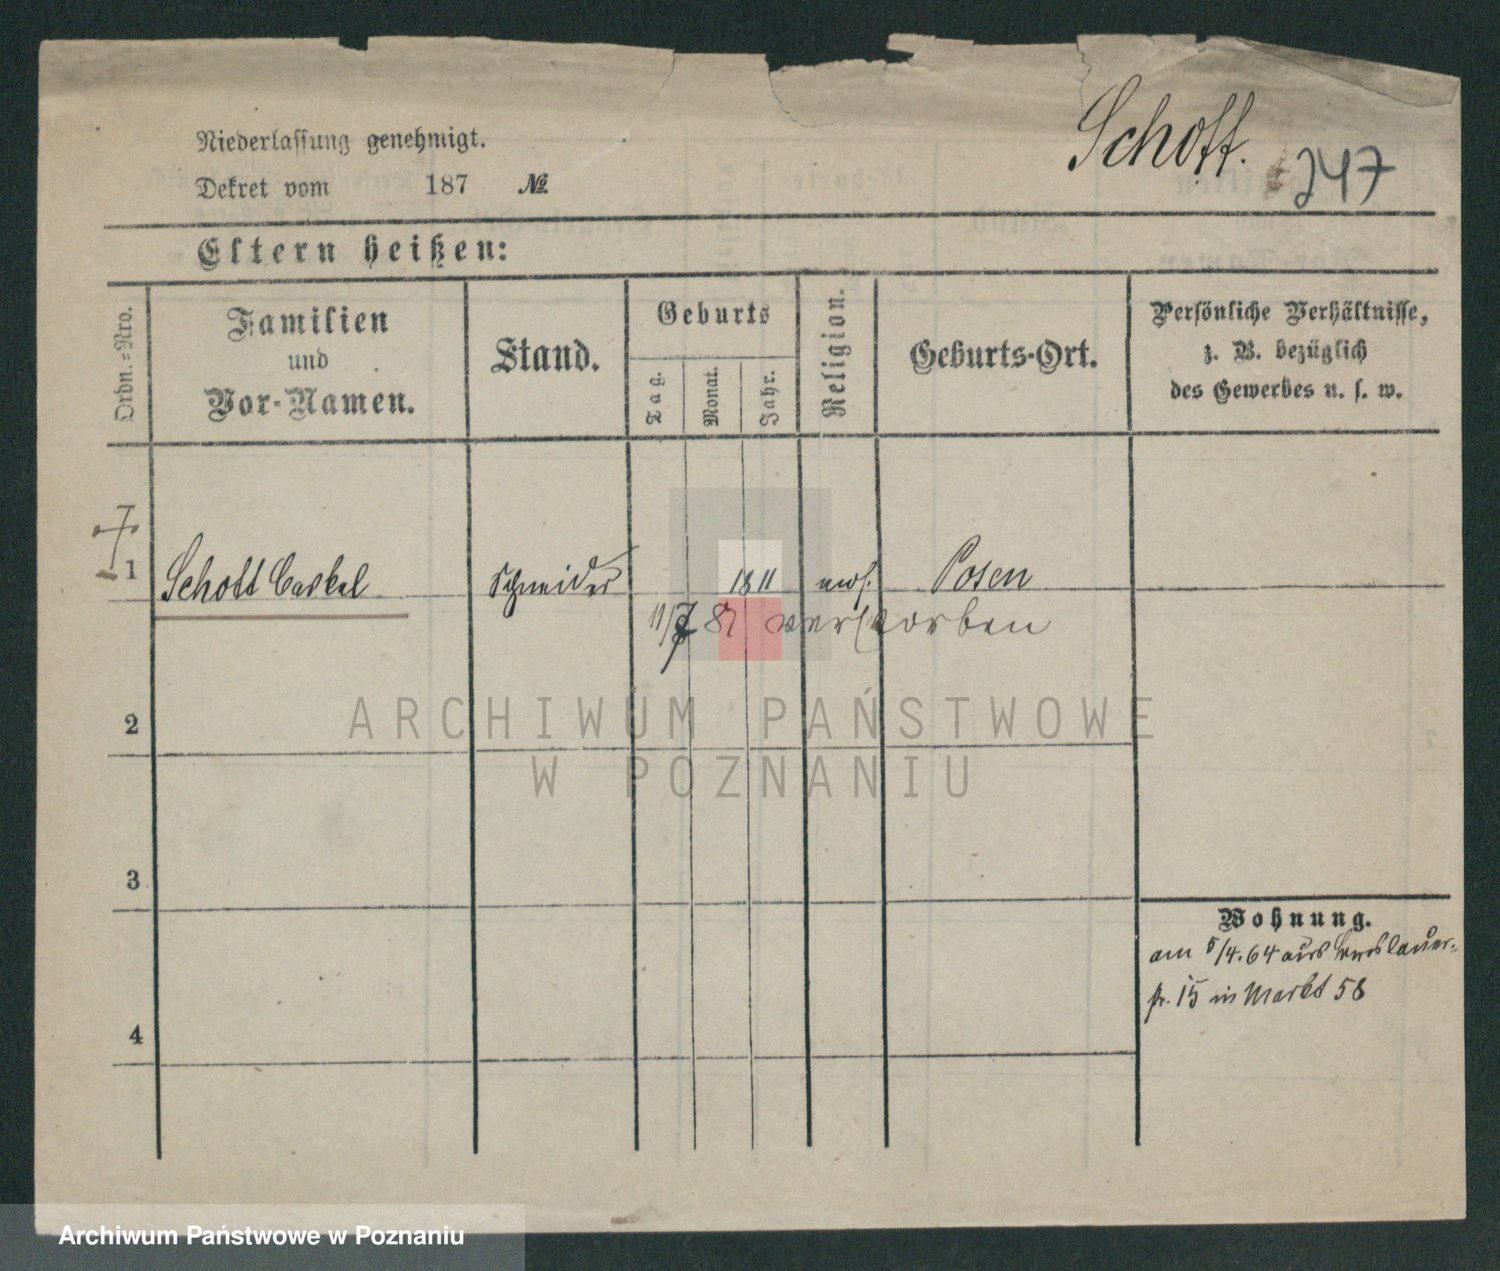 Schott.
247
Niederlassung genehmigt.
Dekret vom 187 №
Eltern heißen:
Ordn.=Nro.
Familien
und
Vor-Namen.
Stand.
Geburts
Tag.
Monat.
Jahr.
Religion.
Geburts-Ort.
Persönliche Verhältnisse,
z. B. bezüglich
des Gewerbes u. s. w.
1 Schott Caskel Schneider 1811 mos. Posen
verstorben
2
3
4
Wohnung.
am 5/4.64 aus Breslauer-
str. 15 in Markt 58
ARCHIWUM PAŃSTWOWE
W POZNANIU
Archiwum Państwowe w Poznaniu